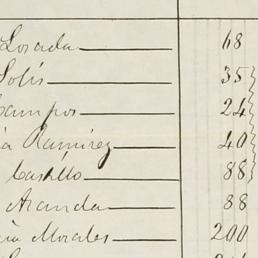 Losada 68
Solís 35
Campos 24
a Ramírez 40
Castillo 88
Aranda 88
ia Morales 200